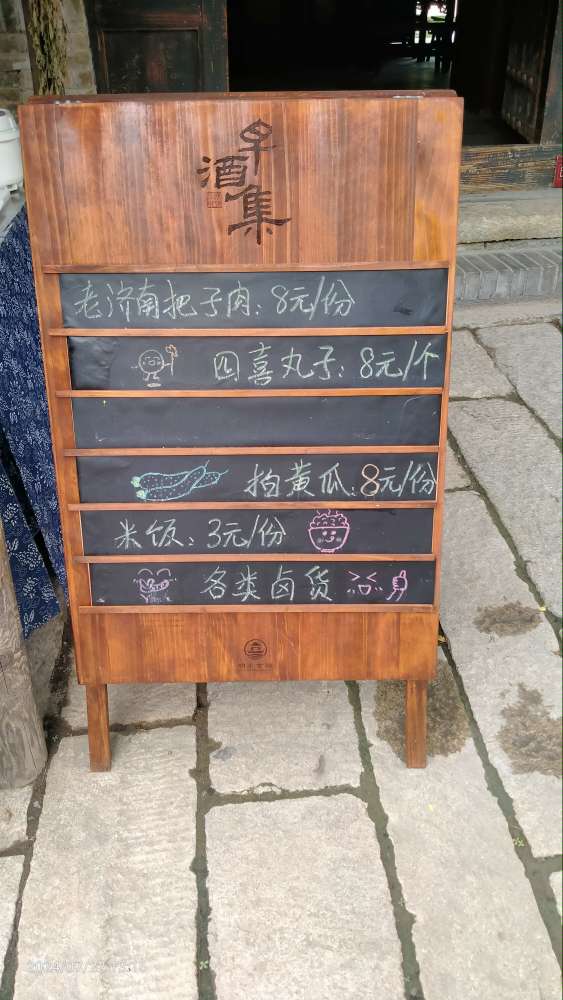 早酒集
老济南把子肉：8元/份
四喜丸子：8元/个
拍黄瓜：8元/份
米饭：3元/份
各类卤货